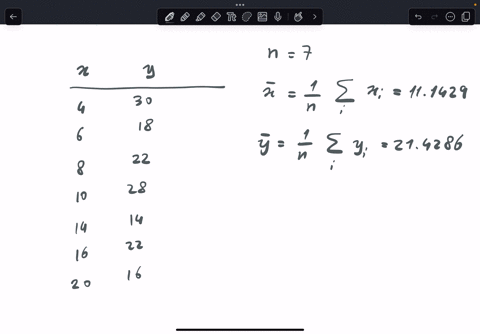 x y
4 30
6 18
8 22
10 28
14 14
16 22
20 16
n = 7
x̄ = 1/n Σ_i x_i = 11.1429
ȳ = 1/n Σ_i y_i = 21.4286